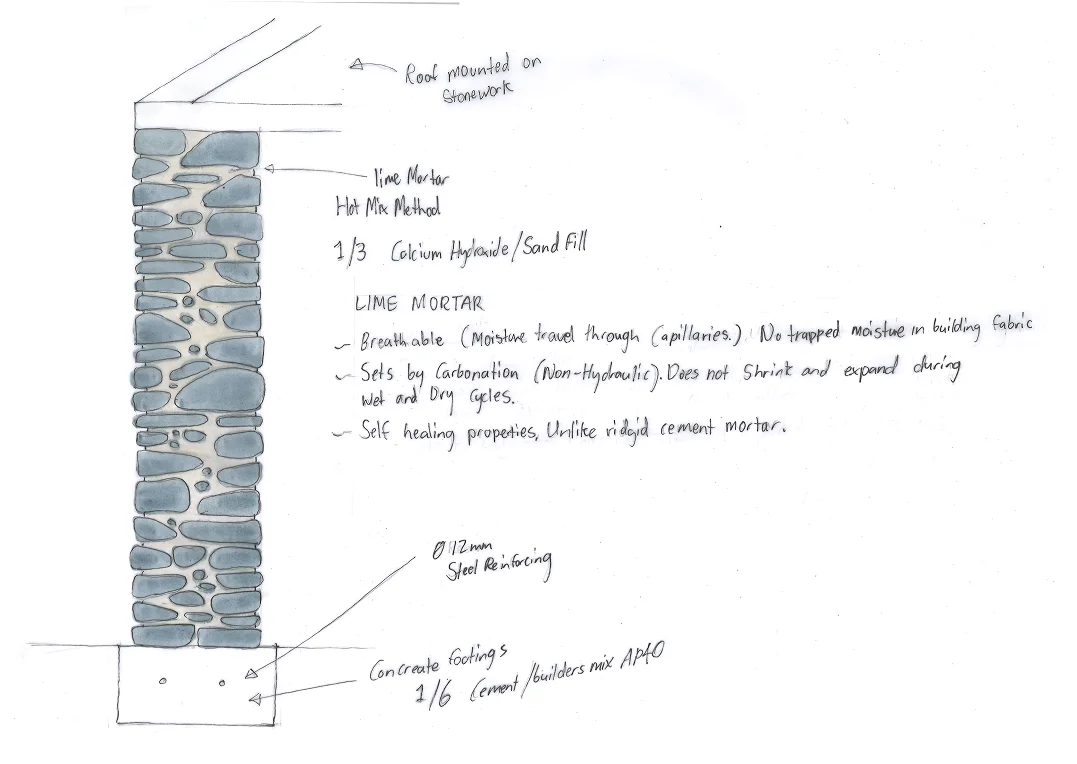 Roof mounted on
Stonework
lime Mortar
Hot Mix Method
1/3 Calcium Hydroxide/Sand Fill
LIME MORTAR
– Breathable (Moisture travel through Capillaries.) No trapped moisture in building fabric
– Sets by Carbonation (Non-Hydraulic). Does not Shrink and expand during
wet and Dry Cycles.
– Self healing properties, Unlike ridgid cement mortar.
Ø12mm
Steel Reinforcing
Concreate footings
1/6 Cement/builders mix AP40